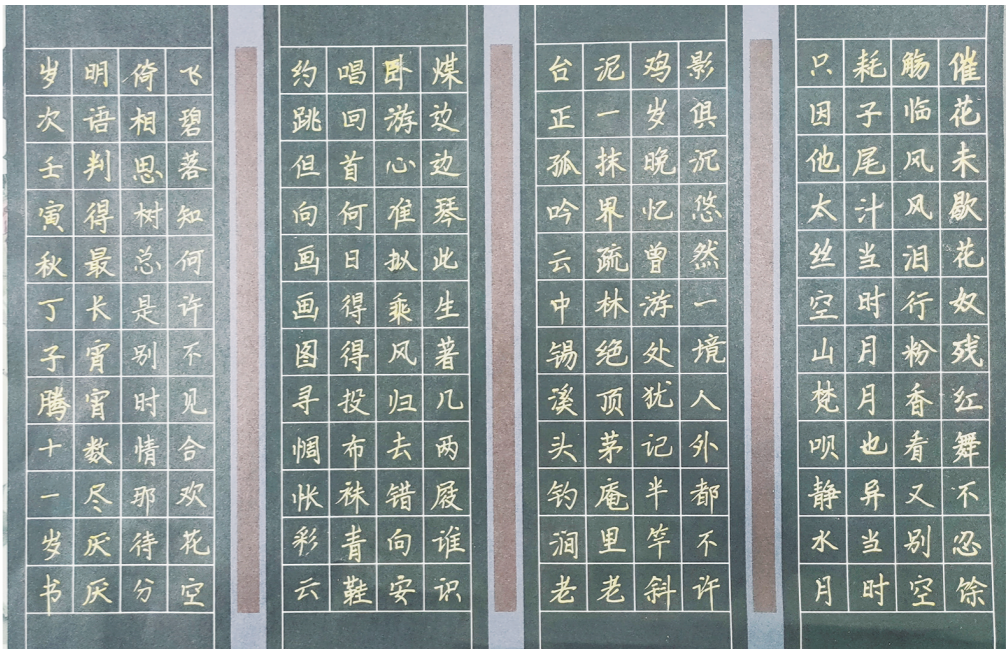 催花未歇花奴残红舞不忍馀
觞临风风泪行粉香看又别空
耗子尾汁当时月月也异当时
只因他太丝空山梵呗静水月
影俱沉悠然一境人外都不许
鸡岁晚忆曾游处犹记半竿斜
泥一抹界疏林绝顶茅庵里老
台正孤吟云中锡溪头钓涧老
煤边边琴此生著几两屐谁识
卧游心准拟乘风归去错向安
唱回首何日得得投布袜青鞋
约跳但向画画图寻惆怅彩云
飞碧落知何许不见合欢花空
倚相思树总是别时情那待分
明语判得最长宵宵数尽厌厌
岁次壬寅秋丁子腾十一岁书